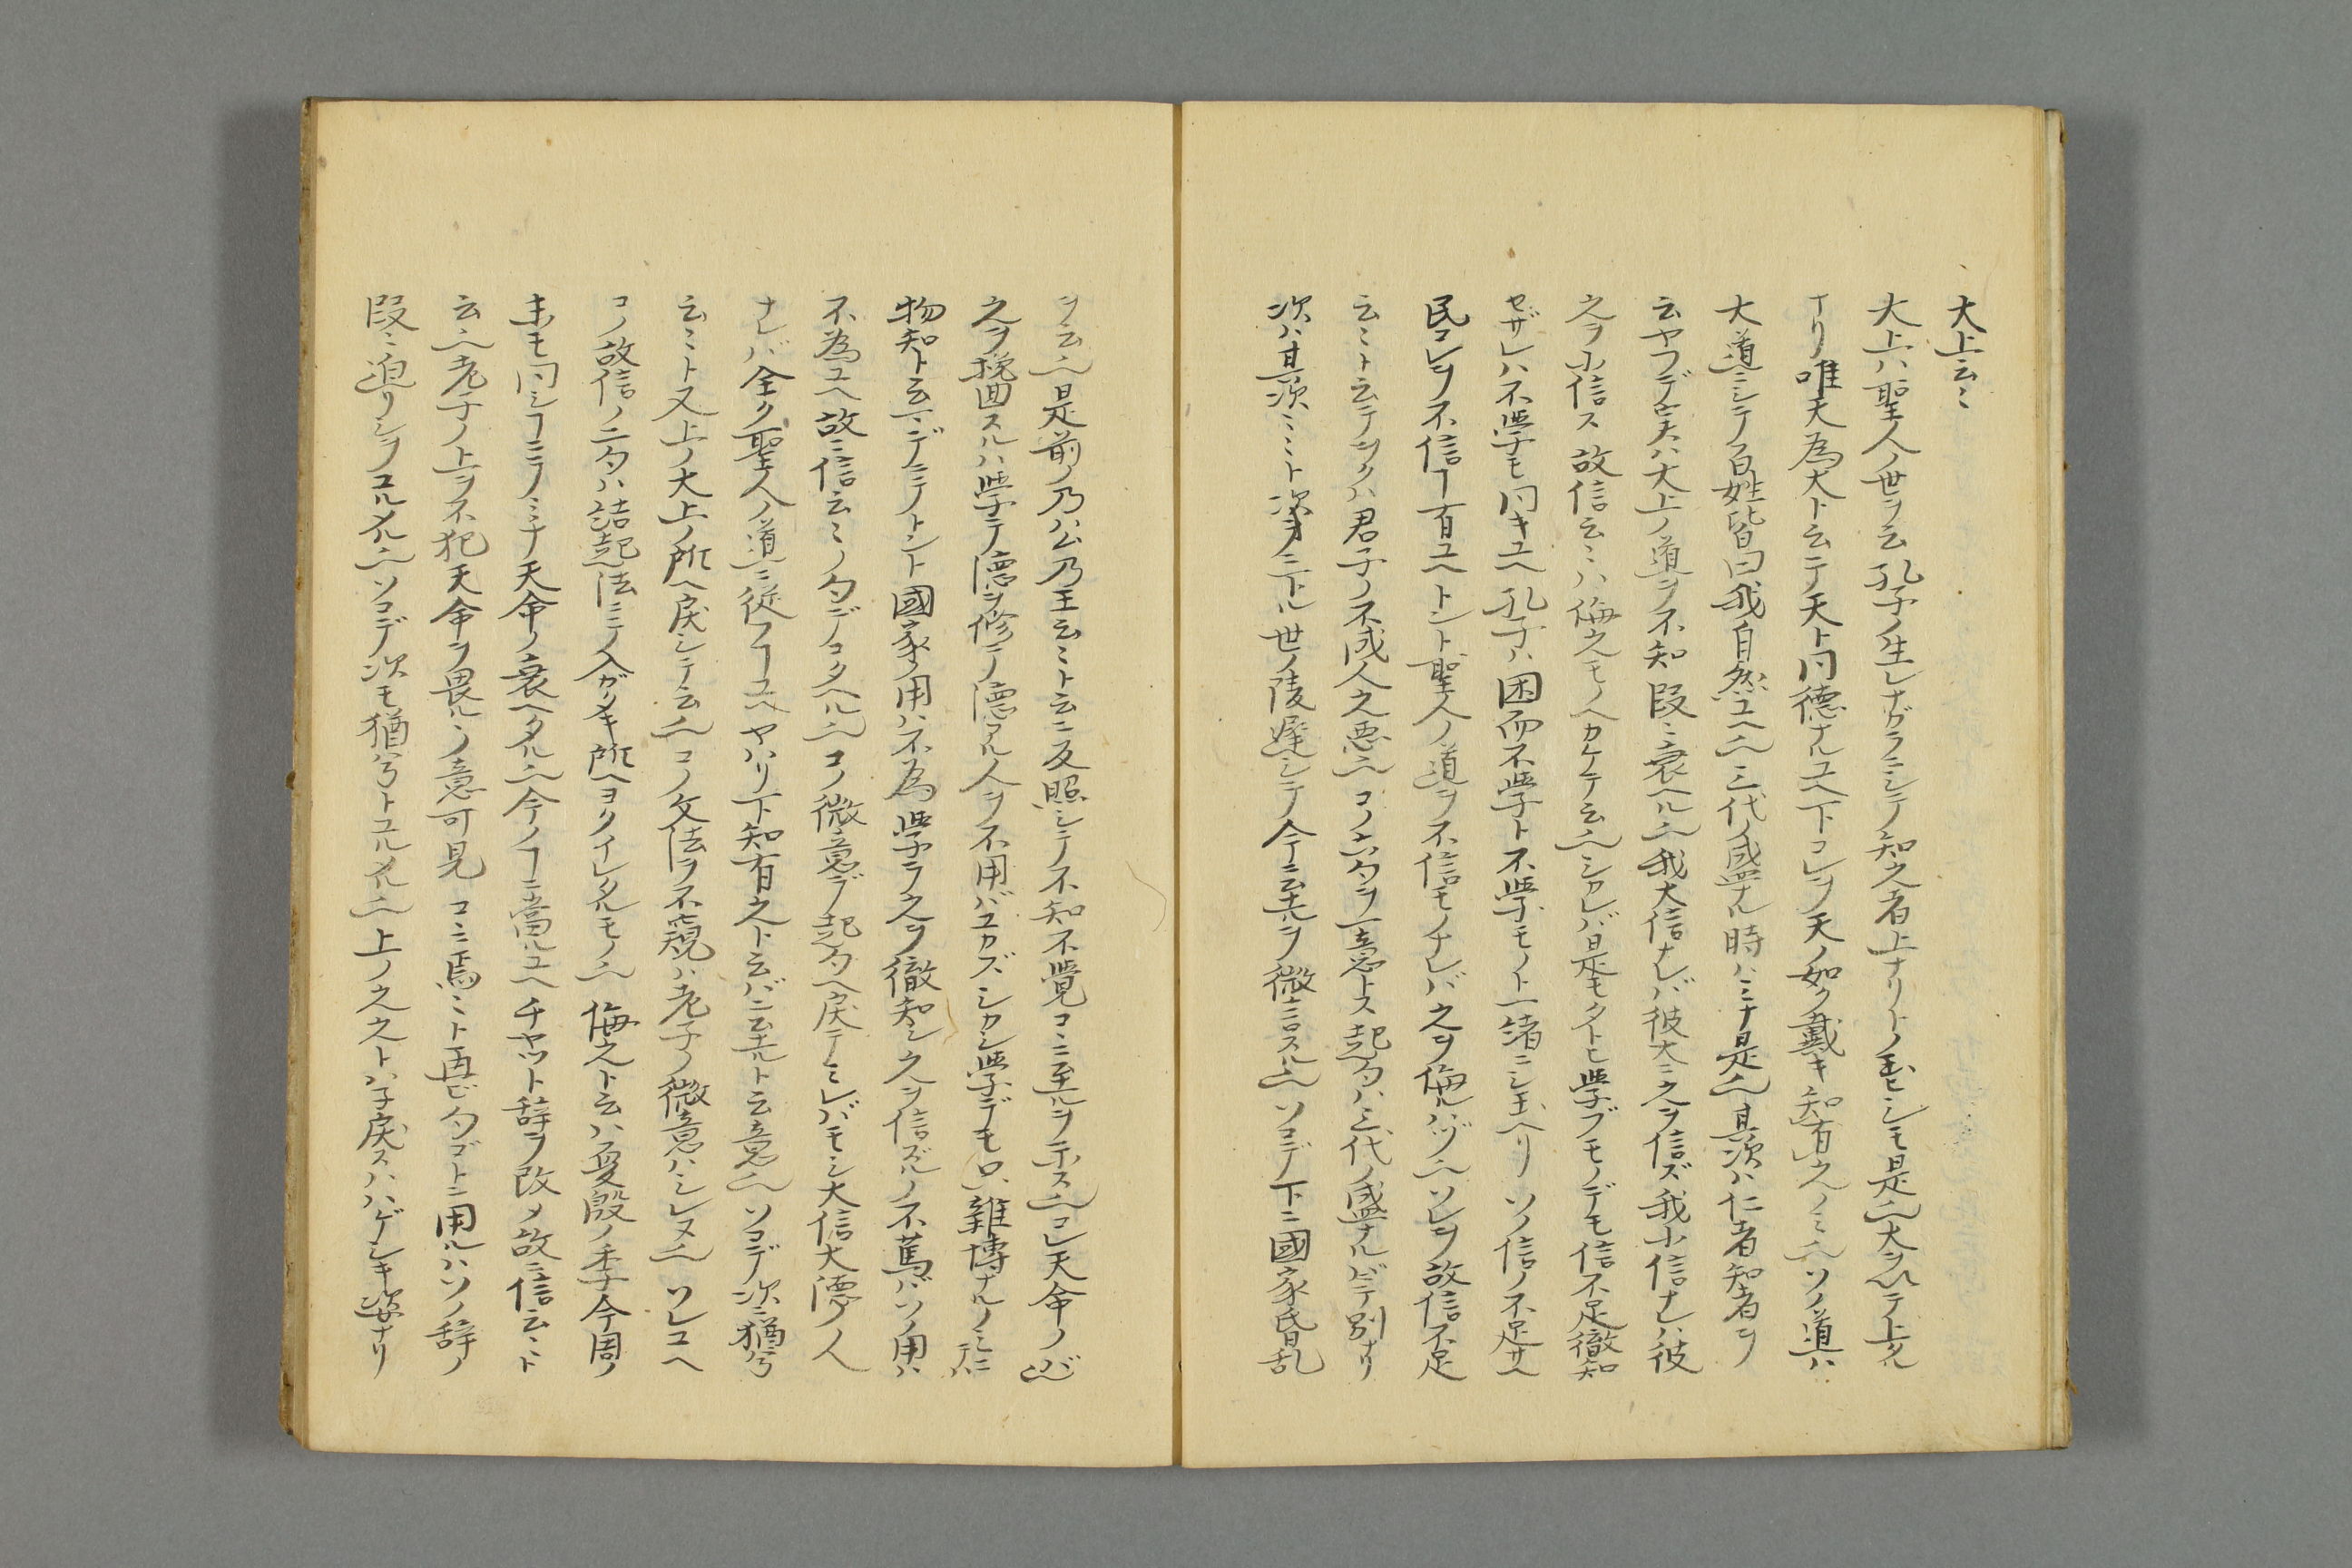 大上云〻
大上ハ聖人ノ世ヲ云孔子ノ生レナガラニシテ知之者上ナリトノ玉ヒシモ是也大ヲ以テ上タル
ナリ唯天為大ト云ニテ天ト同德ナルユヘ下コレヲ天ノ如ク戴キ知有之ノミ也ソノ道ハ
大道ニシテ百姓皆曰我自然ユヘ也三代ノ盛ナル時ハミナ是也其次ハ仁者知者ヲ
云ヤフデ実ハ大上ノ道ヲ不知段〻衰ヘル也我大信ナレバ彼大ニ之ヲ信ズ我小信ナレハ彼
之ヲ小信ス故信云〻ハ侮之モノヘカケテ云也シカレバ是モタトヒ学ブモノデモ信不足徹知
セザレハ不学モ同キユヘ孔子ハ困而不学ト不学モノト一緒ニシ玉ヘリソノ信ノ不足サヘ
民コレヲ不信ヿ有ユヘトント聖人ノ道ヲ不信モノナレバ之ヲ侮ルハヅ也ソレヲ故信不足
云〻ト云テヲクハ君子ノ不成人之悪也コノ六句ヲ一意トス起句ハ三代ノ盛ナル世ニテ別ナリ
次ハ其次〻〻ト次第ニ下ル世ノ陵遅シテ今ニ至ルヲ微言スル也ソコデ下ニ國家昏乱
ヲ云也是前ノ乃公乃王云〻ト云ニ反照シテ不知不覚コヽニ至ルヲ示ス也コレ天命ノ
之ヲ挽回スルハ学テ德ヲ修テ德アル人ヲ不用バユカズシカシ学デモ只雜博ナルノミニテハ
物知ト云マデニテトント國家ノ用ハ不為学ラ之ヲ徹知シ之ヲ信ズルノ不篤バソノ用ハ
不為ユヘ故ニ信云〻ノ句デコタヘル也コノ微意デ起句ヘ戻テミレバモシ大信大德ノ人
ナレバ全ク聖人ノ道ニ従フヿユヘヤハリ下知有之ト云バニ至ルト云意也ソコデ次ニ猶兮
云〻ト又上ノ大上ノ所ヘ戻シテ云也コノ文法ヲ不窺ハ老子ノ微意ハシレヌ也ソレユヘ
コノ故信ノ二句ハ結起法ニテ入ガタキ所ヘヨクイレタルモノ也侮之ト云ハ夏殷ノ季今周ノ
末モ同シヿニテミナ天命ノ衰ヘタル也今ノヿニ當ルユヘチヤット辞ヲ改メ故ニ信云〻ト
云也老子ノ上ヲ不犯天命ヲ畏ルノ意可見コヽニ焉〻ト再ビ句ゴトニ用ルハソノ辞ノ
段〻迫リシヲユルメル也ソコデ次モ猶兮トユルメル也上ノ之之トハ子戻スハハゲシキ姿ナリ